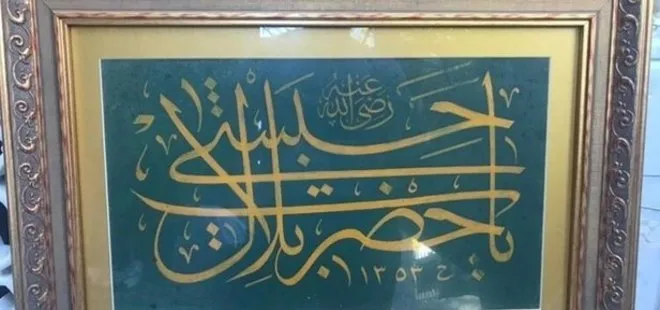 يا حضرت بلال حبشى
رضى الله عنه
ح ١٣٥٣